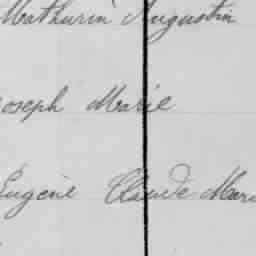 Mathurin Augustin
Joseph Marie
Eugène Claude Marie